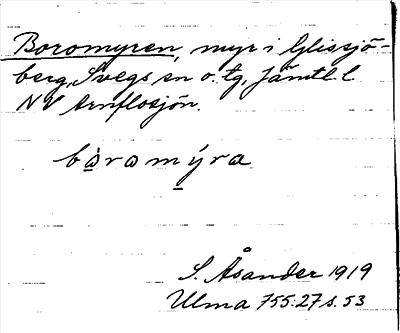 Boromyren, myr i Glissjö-
berg, Svegs sn o. tg, Jämtl. l.
NV Arnflosjön.
bàromýra
S. Åsander 1919
Ulma 755:27 s. 53